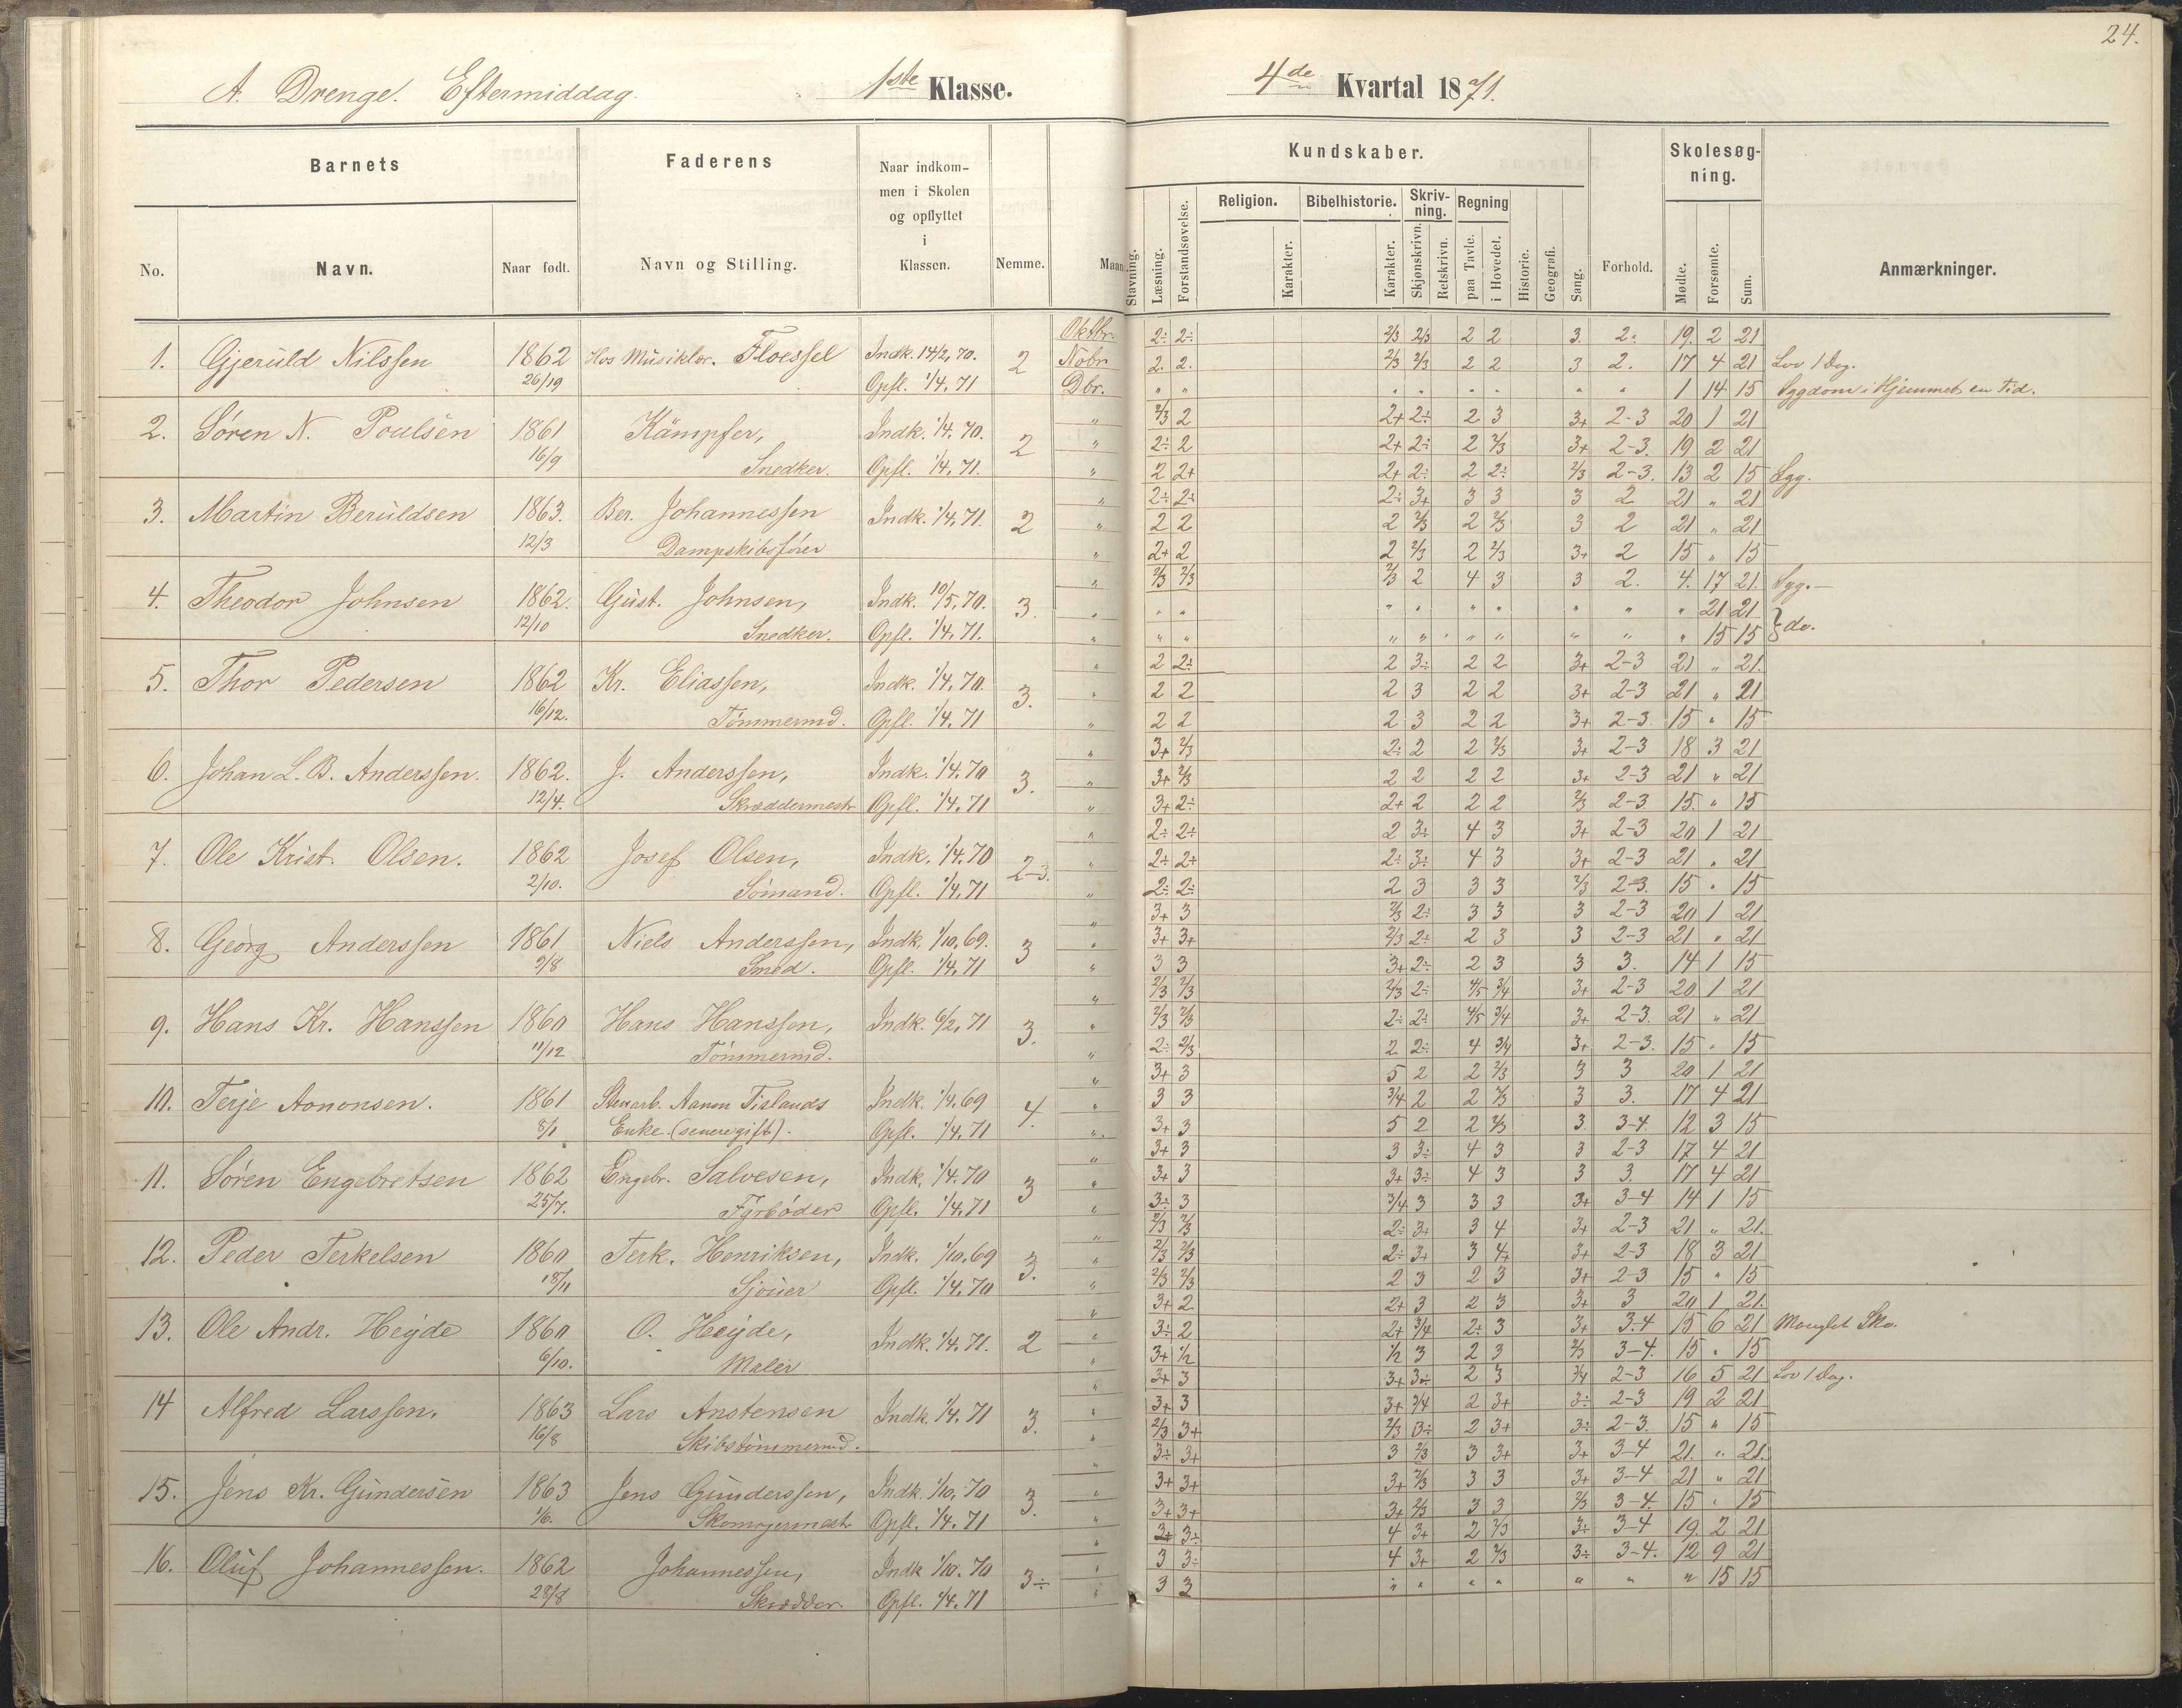 24.
A. Drenge. Eftermiddag. 1ste Klasse. 4de Kvartal 1871.
Barnets Faderens Naar indkommen i Skolen og opflyttet i Klassen. Nemme. Maan Kundskaber. Forhold. Skolesøgning. Anmærkninger.
No. Navn. Naar født. Navn og Stilling. Stavning. Læsning. Forstandsøvelse. Religion. Karakter. Bibelhistorie. Karakter. Skrivning. Skjønskrivn. Retskrivn. Regning paa Tavle. i Hovedet. Historie. Geografi. Sang. Mødte. Forsømte. Sum.
1. Gjeruld Nilssen 1862 26/19 Hos Musiklær. Floessel Indk. 14/2, 70. Opfl. 1/4. 71 2
Oktbr. 2÷ 2÷ 2/3 2/3 2 2 3. 2. 19. 2 21
Nobr 2. 2. 2/3 2/3 2 2 3 2. 17 4 21 Lov 1 Dag.
Dbr. " " " " " " " " 1 14 15 Sygdom i Hjemmet en Tid.
2. Søren N. Poulsen 1861 16/9 Kämpfer, Snedker. Indk. 1/4. 70. Opfl. 1/4. 71. 2
" 2/3 2 2+ 2÷ 2 3 3+ 2-3 20 1 21
" 2÷ 2 2+ 2÷ 2 2/3 3+ 2-3. 19 2 21
" 2 2+ 2+ 2÷ 2 2÷ 2/3 2-3. 13 2 15 Syg.
3. Martin Beruldsen 1863. 12/3 Ber. Johannessen Dampskibsfører Indk. 1/4. 71. 2
" 2÷ 2÷ 2÷ 3+ 3 3 3 2 21 " 21
" 2 2 2 2/3 2 2/3 3 2 21 " 21
" 2+ 2 2 2/3 2 2/3 3+ 2 15 " 15
4. Theodor Johnsen 1862. 12/10 Gust. Johnsen, Snedker. Indk. 10/5. 70. Opfl. 1/4. 71. 3.
" 2/3 2/3 2/3 2 4 3 3 2. 4. 17 21. Syg.—
" " " " " " " " " " 21 21 } do.
" " " " " " " " " " 15 15
5. Thor Pedersen 1862 16/12. Kr. Eliassen, Tømmermd. Indk. 1/4. 70. Opfl. 1/4. 71 3.
" 2 2÷ 2 3÷ 2 2 3+ 2-3 21 " 21.
" 2 2 2 3 2 2 3+ 2-3 21 " 21
" 2 2 2 3 2 2 3+ 2-3 15 " 15
6. Johan L. B. Anderssen. 1862. 12/4. J. Anderssen, Skræddermestr Indk. 1/4. 70 Opfl. 1/4. 71 3.
" 3+ 2/3 2÷ 2 2 2/3 3+ 2-3 18 3 21
" 3+ 2/3 2 2 2 2 3+ 2-3 21 " 21
" 3+ 2÷ 2+ 2 2 2 2/3 2-3 15. " 15
7. Ole Krist. Olsen. 1862 2/10. Josef Olsen, Sømand. Indk. 1/4. 70 Opfl. 1/4. 71 2-3.
" 2÷ 2÷ 2 3÷ 4 3 3+ 2-3 20 1 21
" 2÷ 2+ 2÷ 3÷ 4 3 3+ 2-3 21 " 21
" 2÷ 2÷ 2 3 3 3 2/3 2-3. 15 " 15
8. Georg Anderssen 1861 9/8 Niels Anderssen, Smed. Indk. 1/10. 69. Opfl. 1/4. 71 3
" 3+ 3 2/3 2÷ 3 3 3 2-3 20 1 21
" 3+ 3+ 2/3 2÷ 2 3 3 2-3 21 " 21
" 3 3 3+ 2÷ 2 3 3 3. 14 1 15
9. Hans Kr. Hanssen 1860 11/12 Hans Hanssen, Tømmermd. Indk. 6/2, 71 3.
" 2/3 2/3 2/3 2÷ 4/5 3/4 3+ 2-3 20 1 21
" 2/3 2/3 2÷ 2÷ 4/5 3/4 3+ 2-3. 21 " 21
" 2÷ 2/3 2 2÷ 4 3/4 3+ 2-3. 15 " 15
10. Terje Aanonsen. 1861 8/1 Stenarb. Aanon Tislands Enke (senere gift). Indk. 1/4. 69 Opfl. 1/4. 71 4.
" 3+ 3 5 2 2 2/3 3 3 20 1 21
" 3 3 3/4 2 2 2/3 3 3. 17 4 21
" 3+ 3 5 2 2 2/3 3. 3-4 12 3 15
11. Søren Engebretsen 1862 25/7. Engebr. Salvesen, Fyrbøder Indk. 1/4. 70 Opfl. 1/4. 71 3
" 3+ 3 3 3÷ 4 3 3 2-3 17 4 21
" 3+ 3 3+ 3÷ 4 3 3 3. 17 4 21
" 3÷ 3 3/4 3 3 3 3+ 3-4 14 1 15
12. Peder Terkelsen 1860 18/11 Terk. Henriksen, Sjouer Indk. 1/10. 69 Opfl. 1/4. 70 3.
" 2/3 2/3 2÷ 3+ 3 4 3+ 2-3 21 " 21.
" 2/3 2/3 2÷ 3+ 3 4+ 3+ 2-3 18 3 21
" 2/3 2/3 2 3 2 3 3+ 2-3 15 " 15
13. Ole Andr. Heyde 1860 6/10. O. Heyde, Maler Indk. 1/4. 71. 2
" 3+ 2 2+ 3 2 3 3+ 3 20 1 21.
" 3÷ 2 2+ 3/4 2÷ 3 3+ 3-4 15 6 21 Manglet Sko.
" 3+ 1/2 1/2 3 2 3 2/3 3-4. 15 " 15
14 Alfred Larssen. 1863 16/8 Lars Anstensen Skibstømmermd. Indk. 1/4. 71 3.
" 3+ 3 3+ 3÷ 2 3 3/4 2-3 16 5 21 Lov 1 Dag.
" 3+ 3 3+ 3/4 2 3+ 3÷ 2-3 19 2 21
" 2/3 3+ 2/3 3÷ 2 3+ 3÷ 2-3. 15 " 15
15. Jens Kr. Gundersen 1863 1/6. Jens Gunderssen, Skomagermest. Indk. 1/10. 70 Opfl. 1/4. 71 3.
" 3÷ 3+ 3 2/3 3 3+ 3+ 3-4 21. " 21.
" 3+ 3+ 3+ 2/3 3 3 3+ 3-4 21 " 21
" 3+ 3+ 3+ 2/3 3 3 2/3 3-4. 15 " 15
16. Oluf Johannessen. 1862 28/8 Johannessen, Skrædder. Indk 1/10. 70 Opfl. 1/4. 71 3÷
" 3+ 3÷ 4 3+ 2 2/3 3÷ 3-4 19. 2 21
" 3 3÷ 4 3+ 2 2/3 3÷ 3-4. 12 9 21
" 3 3 " " " " " " " 15 15